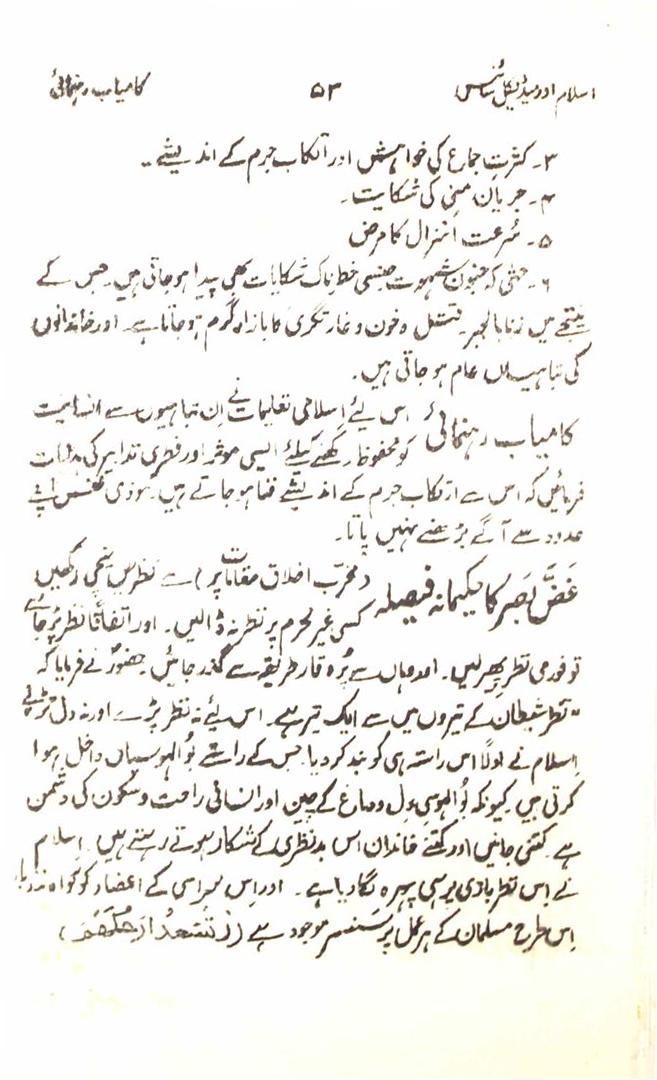 اسلام اور میڈیکل سائنس ۵۳ کامیاب رہنمائی
۳۔ کثرتِ جماع کی خواہش اور ارتکاب جرم کے اندیشے۔
۴۔ جریان منی کی شکایت۔
۵۔ سُرعت انزال کا مرض
۶۔ حتیٰ کہ جنون شہوت جنسی خطرناک شکایات بھی پیدا ہو جاتی ہیں۔ جس کے
نتیجے میں زنا بالجبر۔ قتل و خون و غارتگری کا بازار گرم ہو جاتا ہے۔ اور خاندانوں
کی تباہیاں عام ہو جاتی ہیں۔
کامیاب رہنمائی اس لئے اِسلامی تعلیمات نے اِن تباہیوں سے انسانیت
کو محفوظ رکھنے کیلئے ایسی موثر اور فطری تدابیر کی ہدایات
فرمائیں کہ اس سے ارتکاب جرم کے اندیشے فنا ہو جاتے ہیں۔ موذی نفس اپنے
حدود سے آگے بڑھنے نہیں پاتا۔
غَضِّ بَصَر کا حکیمانہ فیصلہ (مخرّب اخلاق مقامات پر) سے نظریں نیچی رکھیں
کسی غیر محرم پر نظر نہ ڈالیں۔ اور اتفاقاً نظر پڑ جائے
تو فوری نظر پھیر لیں۔ اور وہاں سے پُر وقار طریقے سے گذر جائیں۔ حضورؐ نے فرمایا کہ
"نظر شیطان کے تیروں میں سے ایک تیر ہے۔ اس لیئے نہ نظر پڑے اور نہ دل تڑپے
اِسلام نے اولاً اس راستہ ہی کو بند کر دیا۔ جس کے راستے بُوالہوسیاں داخل ہوا
کرتی ہیں۔ کیونکہ بُوالہوسی دل و دماغ کے چین اور انسانی راحت و سکون کی دشمن
ہے۔ کتنی جانیں اور کتنے خاندان اس بدنظری کے شکار ہوتے رہتے ہیں۔ اِسلام
نے اس نظر بازی پر ہی پہرہ لگا دیا ہے۔ اور اِس پر اسی کے اعضاء کو گواہ بنا دیا۔
اِس طرح مسلمان کے ہر عمل پر سَنسر موجود ہے (وَتَشْهَدُ اَرْجُلُهُمْ)